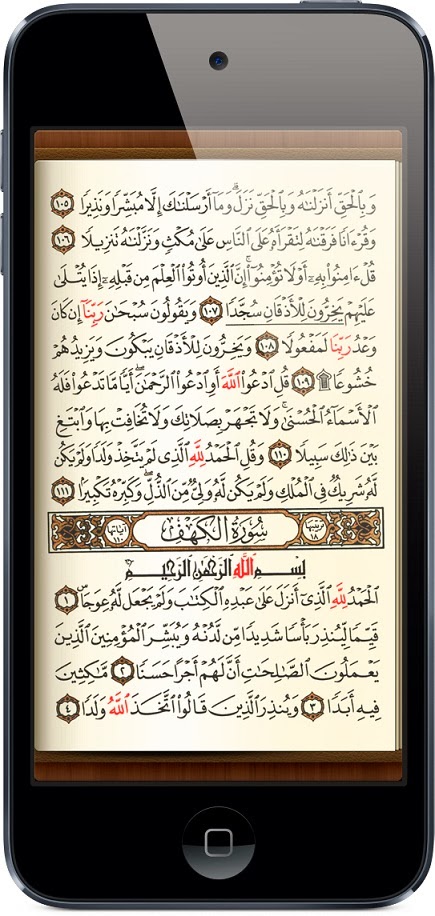 وَبِٱلْحَقِّ أَنزَلْنَٰهُ وَبِٱلْحَقِّ نَزَلَ ۗ وَمَآ أَرْسَلْنَٰكَ إِلَّا مُبَشِّرًا وَنَذِيرًا ١٠٥
وَقُرْءَانًا فَرَقْنَٰهُ لِتَقْرَأَهُۥ عَلَى ٱلنَّاسِ عَلَىٰ مُكْثٍ وَنَزَّلْنَٰهُ تَنزِيلًا ١٠٦
قُلْ ءَامِنُوا۟ بِهِۦٓ أَوْ لَا تُؤْمِنُوٓا۟ ۚ إِنَّ ٱلَّذِينَ أُوتُوا۟ ٱلْعِلْمَ مِن قَبْلِهِۦٓ إِذَا يُتْلَىٰ
عَلَيْهِمْ يَخِرُّونَ لِلْأَذْقَانِ سُجَّدًا ١٠٧ وَيَقُولُونَ سُبْحَٰنَ رَبِّنَآ إِن كَانَ
وَعْدُ رَبِّنَا لَمَفْعُولًا ١٠٨ وَيَخِرُّونَ لِلْأَذْقَانِ يَبْكُونَ وَيَزِيدُهُمْ
خُشُوعًا ۩ ١٠٩ قُلِ ٱدْعُوا۟ ٱللَّهَ أَوِ ٱدْعُوا۟ ٱلرَّحْمَٰنَ ۖ أَيًّا مَّا تَدْعُوا۟ فَلَهُ
ٱلْأَسْمَآءُ ٱلْحُسْنَىٰ ۚ وَلَا تَجْهَرْ بِصَلَاتِكَ وَلَا تُخَافِتْ بِهَا وَٱبْتَغِ
بَيْنَ ذَٰلِكَ سَبِيلًا ١١٠ وَقُلِ ٱلْحَمْدُ لِلَّهِ ٱلَّذِى لَمْ يَتَّخِذْ وَلَدًا وَلَمْ يَكُن
لَّهُۥ شَرِيكٌ فِى ٱلْمُلْكِ وَلَمْ يَكُن لَّهُۥ وَلِىٌّ مِّنَ ٱلذُّلِّ ۖ وَكَبِّرْهُ تَكْبِيرًۢا ١١١
ترتيبها ١٨ سُورَةُ الكَهْفِ آياتها ١١٠
بِسْمِ ٱللَّهِ ٱلرَّحْمَٰنِ ٱلرَّحِيمِ
ٱلْحَمْدُ لِلَّهِ ٱلَّذِىٓ أَنزَلَ عَلَىٰ عَبْدِهِ ٱلْكِتَٰبَ وَلَمْ يَجْعَل لَّهُۥ عِوَجَا ۜ ١
قَيِّمًا لِّيُنذِرَ بَأْسًا شَدِيدًا مِّن لَّدُنْهُ وَيُبَشِّرَ ٱلْمُؤْمِنِينَ ٱلَّذِينَ
يَعْمَلُونَ ٱلصَّٰلِحَٰتِ أَنَّ لَهُمْ أَجْرًا حَسَنًا ٢ مَّٰكِثِينَ
فِيهِ أَبَدًا ٣ وَيُنذِرَ ٱلَّذِينَ قَالُوا۟ ٱتَّخَذَ ٱللَّهُ وَلَدًا ٤